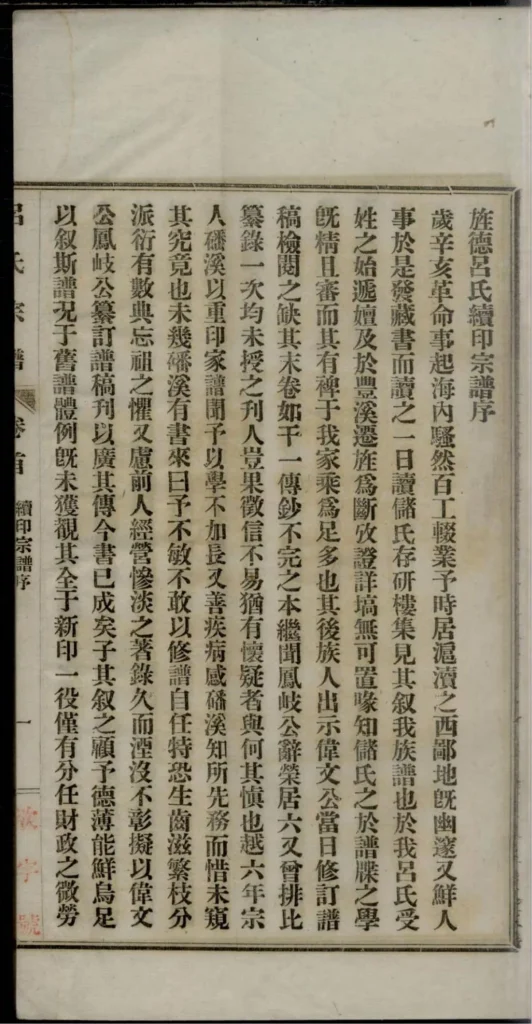 旌德呂氏續印宗譜序
歲辛亥革命事起海內騷然百工輟業予時居滬瀆之西鄙地既幽邃又鮮人
事於是發藏書而讀之一日讀儲氏存研樓集見其叙我族譜也於我呂氏受
姓之始遞嬗及於豐溪遷旌爲斷攷證詳塙無可置喙知儲氏之於譜牒之學
既精且審而其有裨于我家乘爲足多也其後族人出示偉文公當日修訂譜
稿檢閱之缺其末卷如干一傳鈔不完之本繼聞鳳岐公辭榮居六又曾排比
纂錄一次均未授之刊人豈果徵信不易猶有懷疑者與何其愼也越六年宗
人磻溪以重印家譜聞予以學不加長又善疾病感磻溪知所先務而惜未窺
其究竟也未幾磻溪有書來曰予不敏不敢以修譜自任特恐生齒滋繁枝分
派衍有數典忘祖之懼又慮前人經營慘淡之著錄久而湮沒不彰擬以偉文
公鳳岐公纂訂譜稿刊以廣其傳今書已成矣子其叙之顧予德薄能鮮烏足
以叙斯譜况于舊譜體例既未獲覩其全于新印一役僅有分任財政之微勞
呂氏宗譜 卷首 續印宗譜序 一
字號